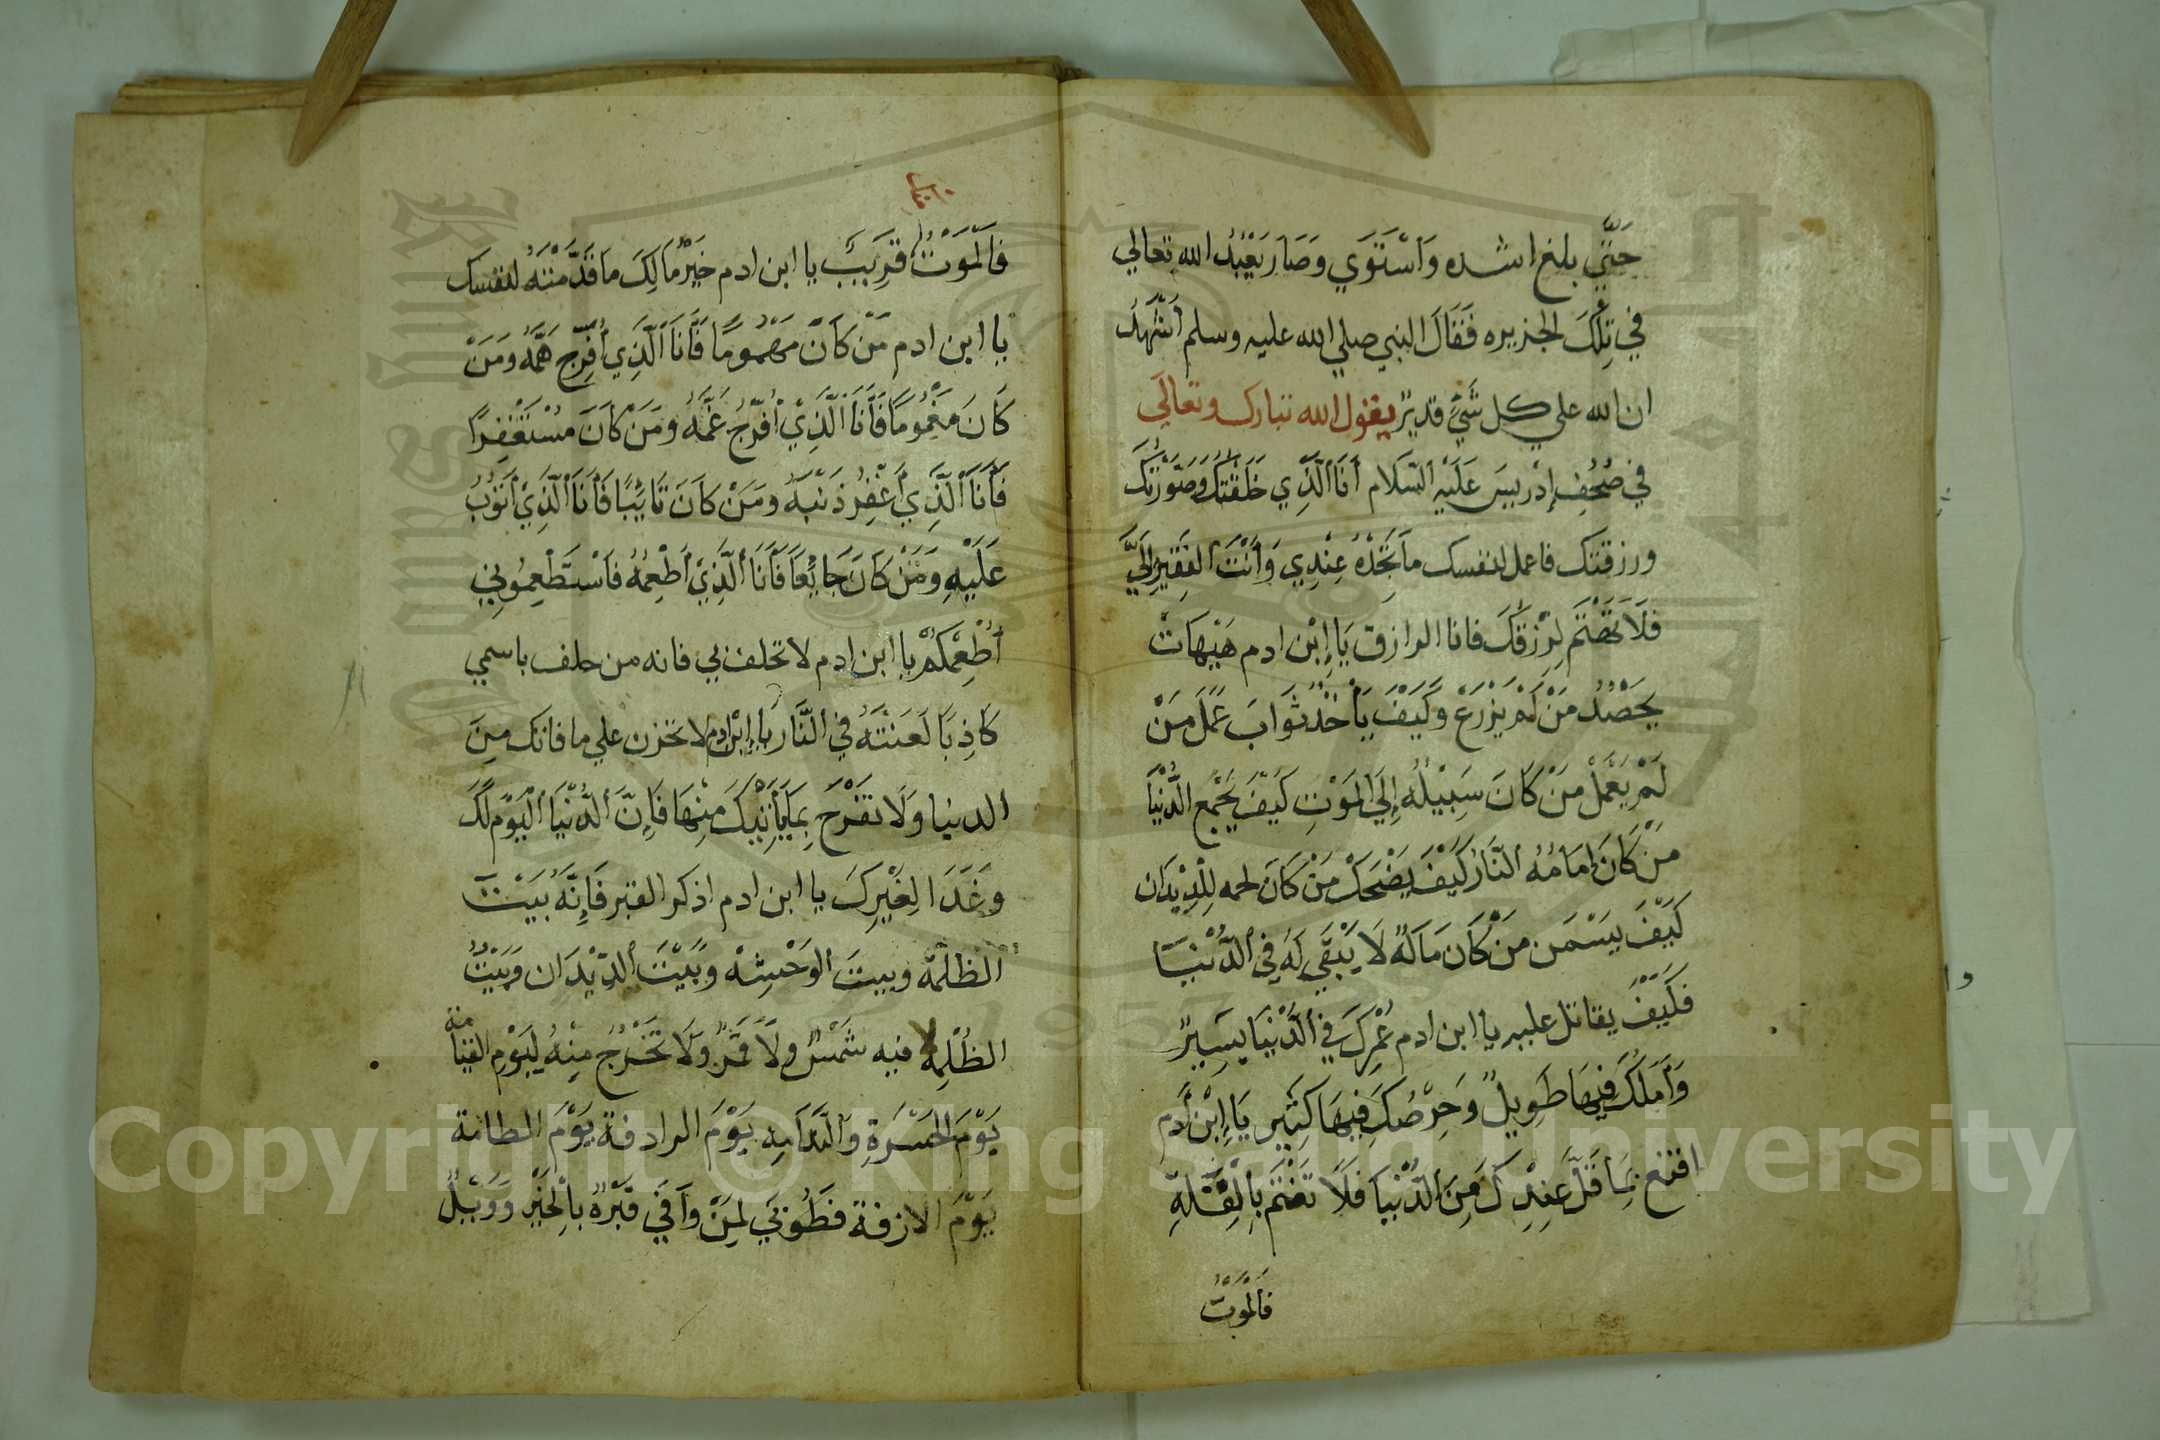 حَتَّي بلغ اشده وَاسْتَوَي وَصَارَ يَعْبُدُ الله تعالي
في تِلْكَ الجزيره فَقَالَ النبي صلي الله عليه وسلم أَشْهَدُ
ان الله علي كل شَيْءٍ قديرٌ يقول الله تبارك وتعالَي
في صُحُفِ إدْرِيسَ عَلَيْهِ السَّلام أنَا الَّذِي خَلَقْتُكَ وَصَوَّرْتُكَ
ورزقتك فاعمل لنفسك مَا تَجِدْهُ عِنْدِي وَأنْتَ الفَقِيرُ إلَيَّ
فَلَا تَهْتَم لِرِزْقِكَ فانا الرازق يَا إِبْن ادم هَيْهَاتْ
يَحْصُدُ مَنْ لَمْ يَزْرَعْ وَكَيْفَ يَأْخُذُ ثَوَابَ عَمَلٍ مَنْ
لَمْ يَعْمَلْ مَنْ كَانَ سَبِيْلُهُ إِلَي المَوْتِ كَيْفَ يَجْمَعُ الدُّنْيَا
مَنْ كَانَ امَامُهُ النَّارُ كَيْفَ يَضْحَكْ مَنْ كَانَ لحمه لِلدِّيْدَان
كَيْفَ يَسْمَن مَنْ كَانَ مَالَهُ لَا يَبْقَي لَهُ في الدُّنْيَا
فَكَيْفَ يقاتل عليه يا ابن ادم عُمْرِكَ في الدُّنْيَا يسيرٌ
وَأَمَلُكَ فِيهَا طَوِيلٌ وَحِرْصُكَ فِيهَا كَثِير يَا إِبْن أَدم
اقنع بِمَا قَلَّ عِنْدِكَ مِنَ الدُّنْيا فَلَا تَغْتَمّ بِالقِلَّةِ
فَالْمَوْتُ
فَالْمَوْتُ قَرِيبٌ يا ابن ادم خَيْرُ مَالِكَ ما قَدَّمْتَهُ لنفسك
يا ابن ادم مَنْ كَانَ مَهْمُومًا فَأَنَا الَّذِي أُفَرِّج هَمَّهُ وَمَنْ
كَانَ مَغْمُومًا فَأَنَا الَّذِيْ أُفَرِّجُ غَمَّهُ وَمَنْ كَانَ مُسْتَغْفِرًا
فَأَنَا الَّذِي أَغْفِرُ ذَنْبَهُ وَمَنْ كَانَ تَايِبًا فَأَنَا الَّذِيْ أَتُوبُ
عَلَيْهِ وَمَنْ كَانَ جَايِعًا فَأَنَا الَّذِيْ أُطْعِمُهُ فَاسْتَطْعِمُونِي
أُطْعِمْكُمْ يا ابن ادم لا تحلف بي فانه من حلف باسمي
كَاذِبًا لَعَنْتَهُ في النَّار يا إبْن ادم لا تحزن علي ما فاتك مِنَ
الدنيا وَلَا تَفْرَحُ بِمَا يَأتِيْكَ مِنْهَا فَإِنَّ الدُّنْيَا الْيَوْمَ لَكَ
وَغَدًا لِغَيْرِكَ يا ابن ادم اذكر القبر فَإِنَّهُ بَيْتَ
الظُلْمَة وبيتَ الوَحْشِهْ وَبَيْتَ الدِّيْدَان وَبَيْتُ
الظُلْمِهْ لا فيه شَمْسٌ وَلَا قَمَرٌ وَلَا تَخْرُجُ مِنْهُ لِيَوْم القيامة
يَوْمَ الحَسْرَةِ وَالنَّدَامِه يَوْمَ الرادفة يَوْمَ الطامة
يَوْمَ الازفة فَطُوبَي لِمَنْ وَافَي قَبْرَهُ بِالْخَيْرِ وَوَيْلٌ
Copyright © King Saud University